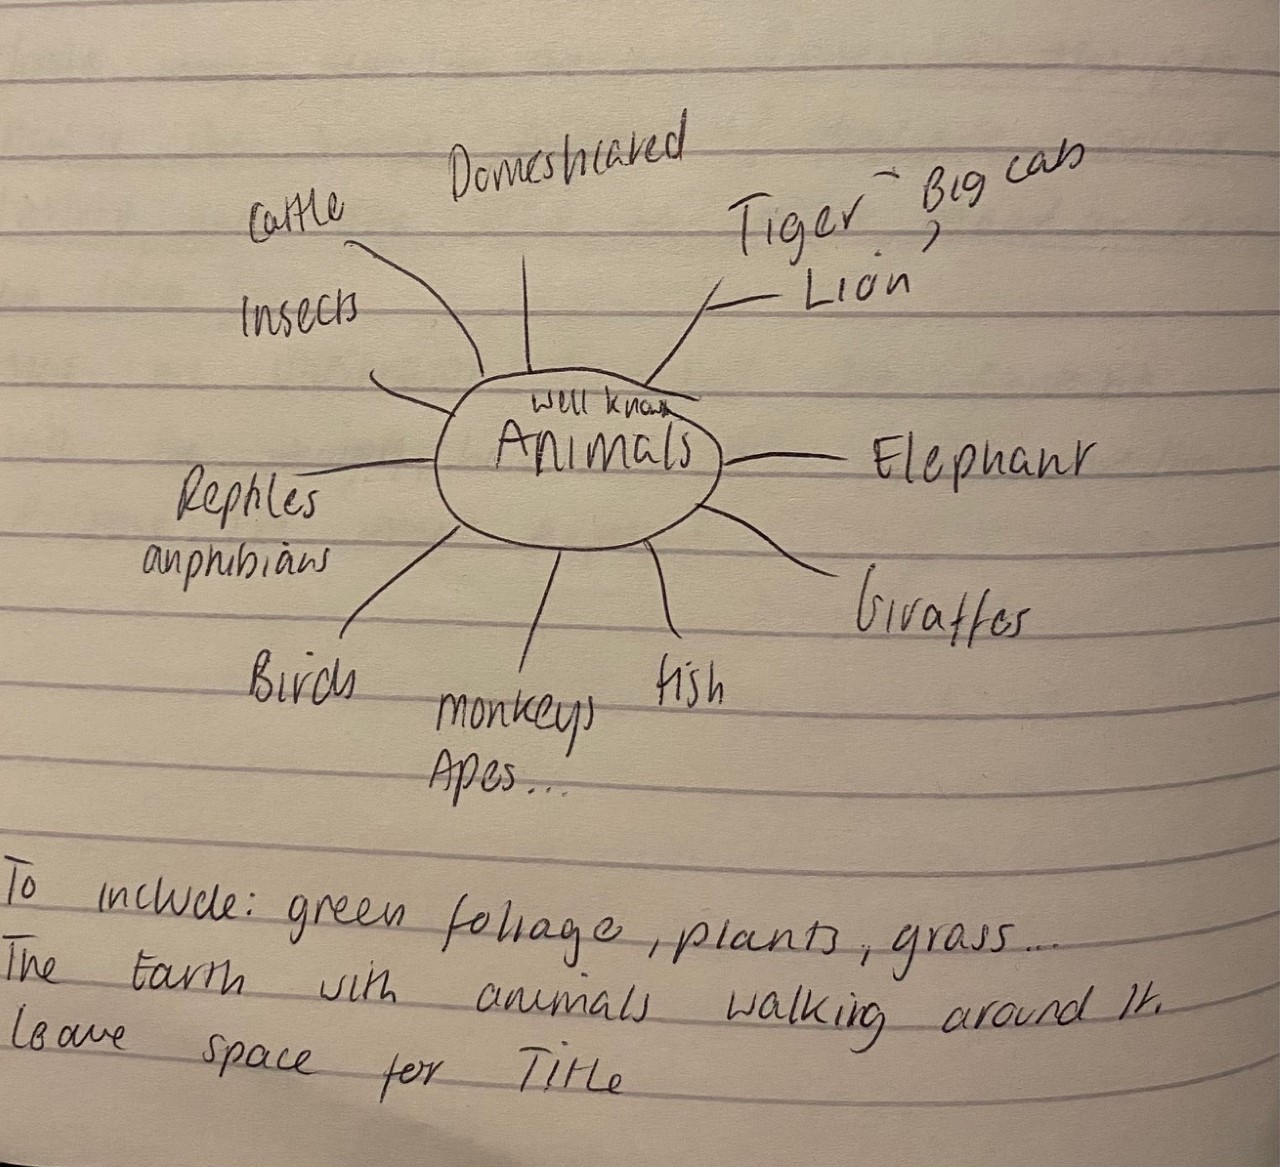 Domesticated
Cattle
Tiger - Big cats
Lion,
Insects
well known
Animals
Elephant
Reptiles
amphibians
Giraffes
Birds
monkeys
Apes...
fish
To include: green foliage, plants, grass...
The Earth with animals walking around it.
leave space for Title